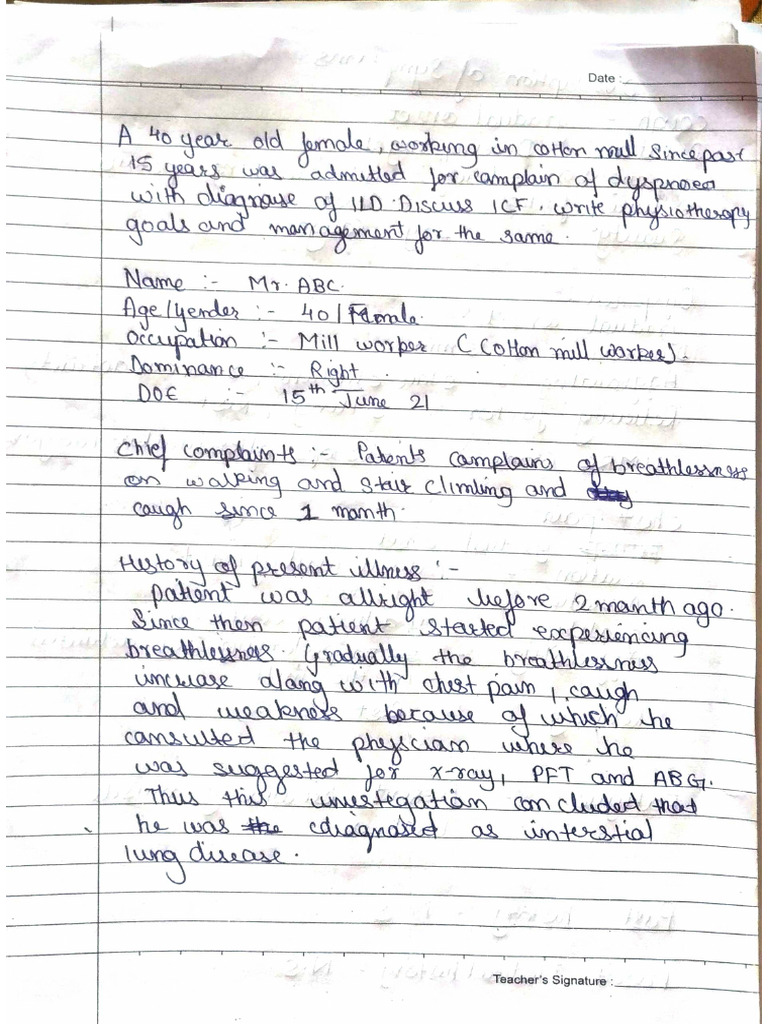 Date :
A 40 year old female, working in cotton mill since past
15 years was admitted for complain of dyspnoea
with diagnose of ILD. Discuss ICF. write physiotherapy
goals and management for the same.
Name :- Mr. ABC.
Age/gender :- 40 / Female.
Occupation :- Mill worker (Cotton mill worker).
Dominance :- Right
DOE :- 15th June 21
Chief complaints :- Patients complains of breathlessness
on walking and stair climbing and
caugh since 1 month.
History of present illness :-
patient was allright before 2 month ago.
Since then patient started experiencing
breathlessness. Gradually the breathlessness
increase along with chest pain, caugh
and weakness because of which he
consulted the physcian where he
was suggested for x-ray, PFT and ABG.
Thus this investegation concluded that
he was diagnosed as interstial
lung disease.
Teacher's Signature :